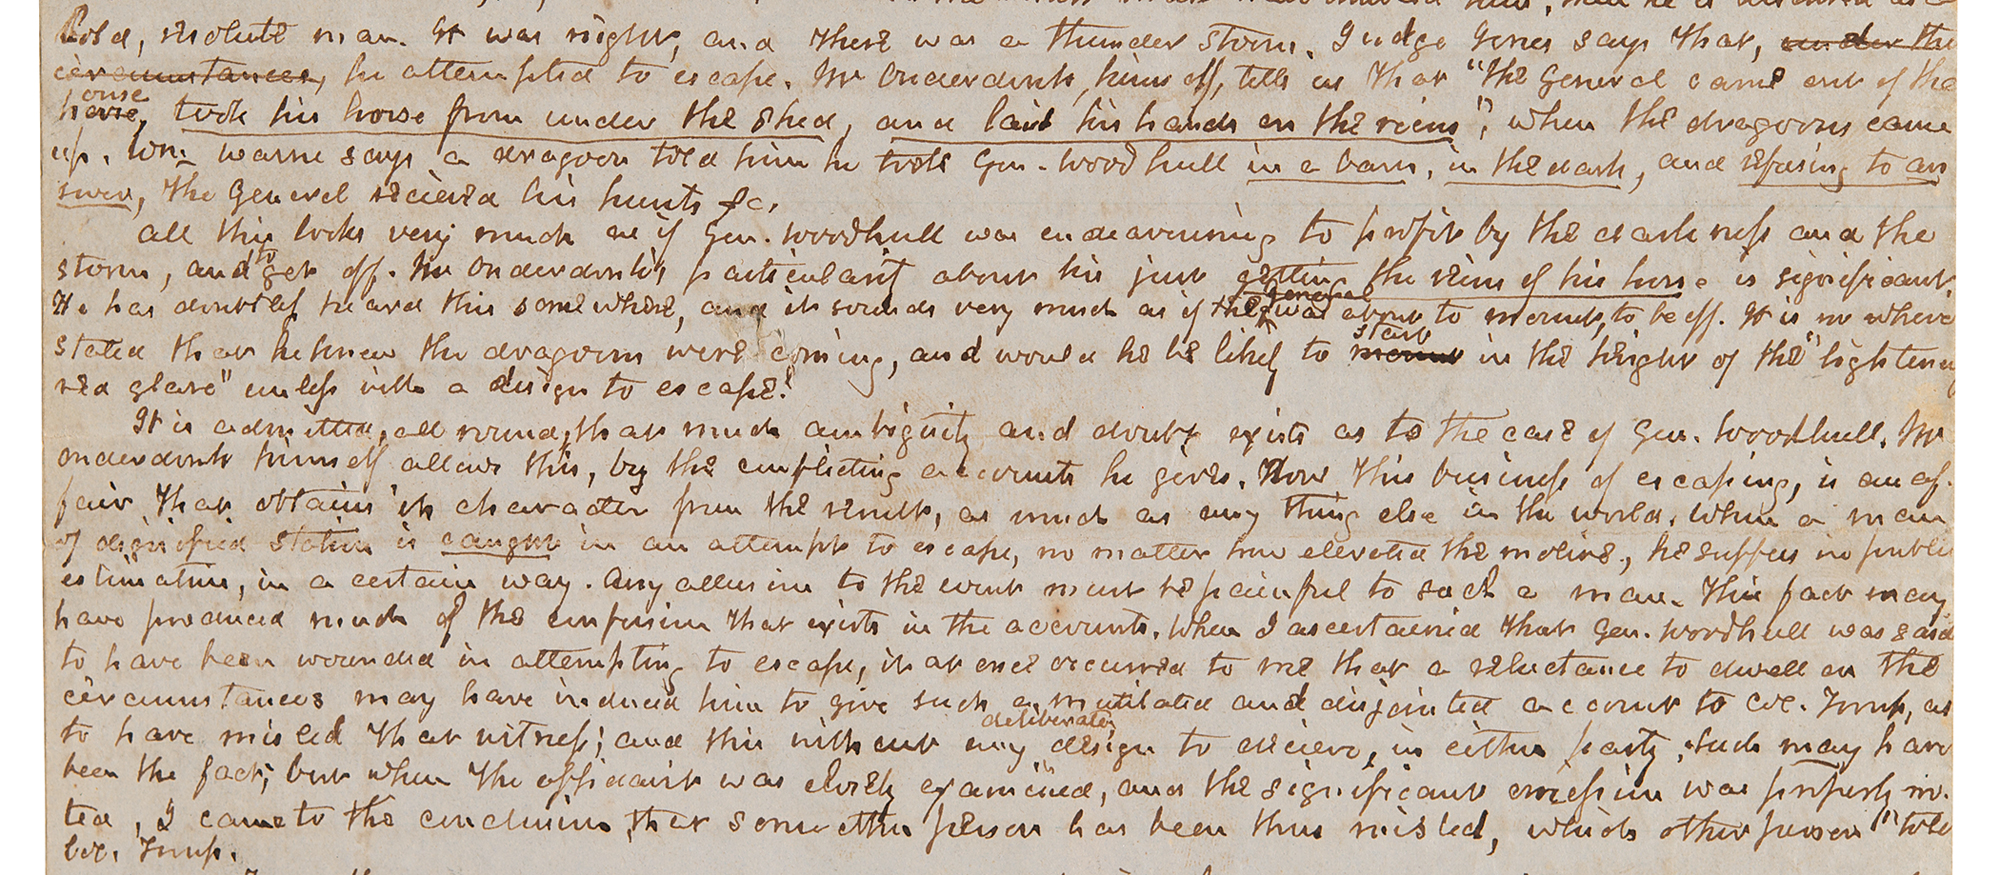 bold, resolute man. It was night, and there was a thunder storm. Judge Jones says that, under the
circumstances, he attempted to escape. Mr Onderdonk, himself, tells us that "the General came out of the
house, took his horse from under the shed, and laid his hands on the reins", when the dragoons came
up. Wm. Warne says a dragoon told him he took Gen. Woodhull in a barn, in the dark, and refusing to an
swer, the General recieved his hurts &c.
All this looks very much as if Gen. Woodhull was endeavouring to profit by the darkness and the
storm, and to get off. Mr Onderdonk's particularity about his just getting the reins of his horse is significant.
He has doubtless heard this somewhere, and it sounds very much as if the general was about to mount, to be off. It is no where
stated that he knew the dragoons were coming, and would he be likely to mount start in the height of the "lightening
red glare" unless with a design to escape?
It is admitted, all round, that much ambiguity and doubt exists as to the case of Gen. Woodhull. Mr
Onderdonk himself allows this, by the conflicting accounts he gives. Now this business of escaping, is an af-
fair that obtains its character from the result, as much as any thing else in the world. When a man
of dignified station is caught in an attempt to escape, no matter how elevated the motive, he suffers in public
estimation, in a certain way. Any allusion to the event must be painful to such a man. This fact may
have produced much of the confusion that exists in the accounts. When I ascertained that Gen. Woodhull was said
to have been wounded in attempting to escape, it at once occurred to me that a reluctance to dwell on the
circumstances may have induced him to give such a mutilated and disjointed account to Col. Troup, as
to have misled that witness; and this without any deliberate design to decieve, in either party. Such may have
been the fact; but when the affidavit was closely examined, and the significant omission was properly no-
ted, I came to the conclusion that some other person has been thus misled, which other person "told
Col. Troup.